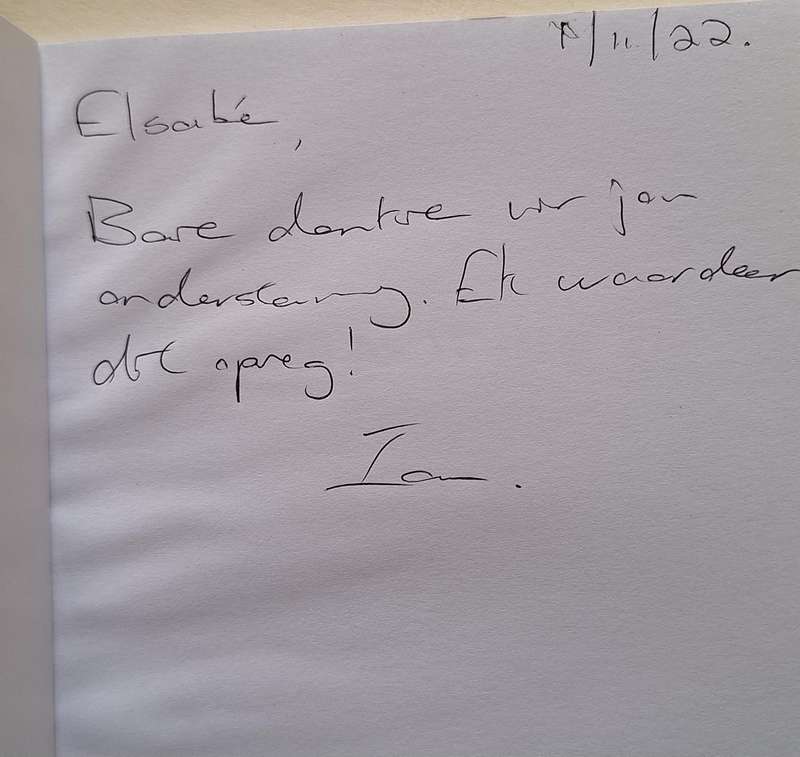 /11/22.
Elsabé,
Baie dankie vir jou
ondersteuning. Ek waardeer
dit opreg!
Ian.